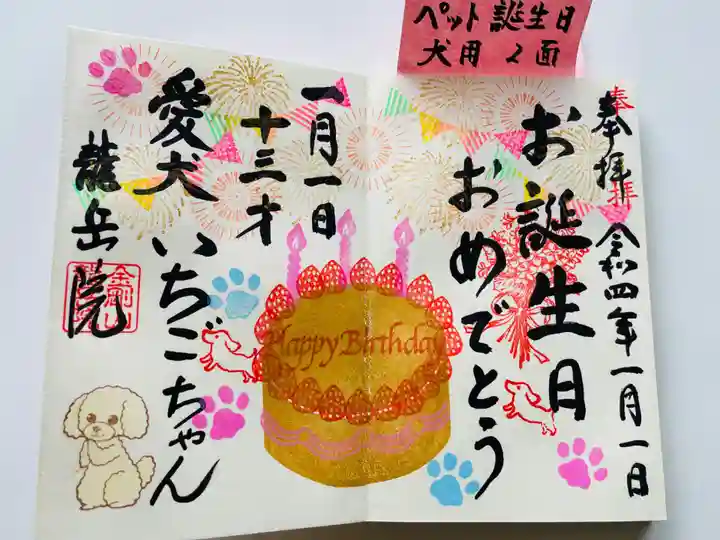 ペット誕生日
犬用 2面
奉拝
奉拝 令和四年一月一日
お誕生日
おめでとう
Happy Birthday
一月一日
十三才
愛犬いちごちゃん
龍岳院